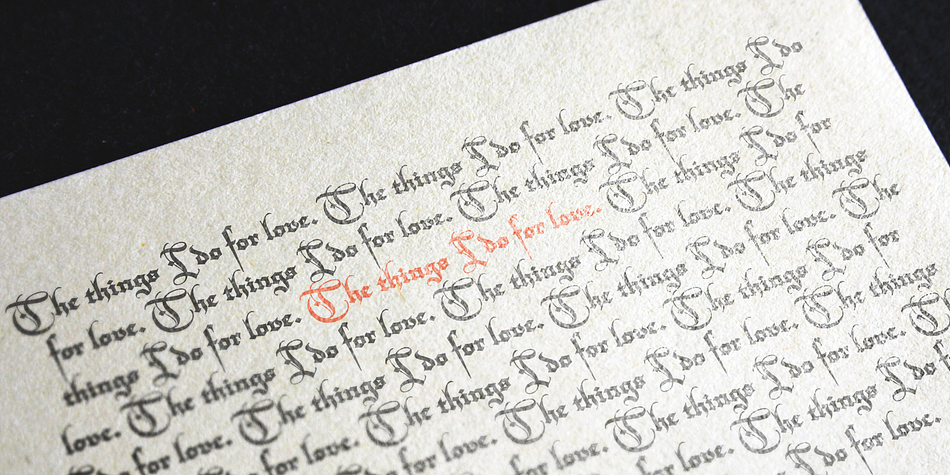 The things I do for love. The things I do for love. The things I do
for love. The things I do for love. The things I do for love. The
things I do for love. The things I do for love. The things I do for
love. The things I do for love. The things I do for love. The things
do for love. The things I do for love. The things I do for love. The
for love. The things I do for love. The things I do for
do for love. The things I do for love. The things
for love. The things I do for love. The
love. The things I do
do for love.